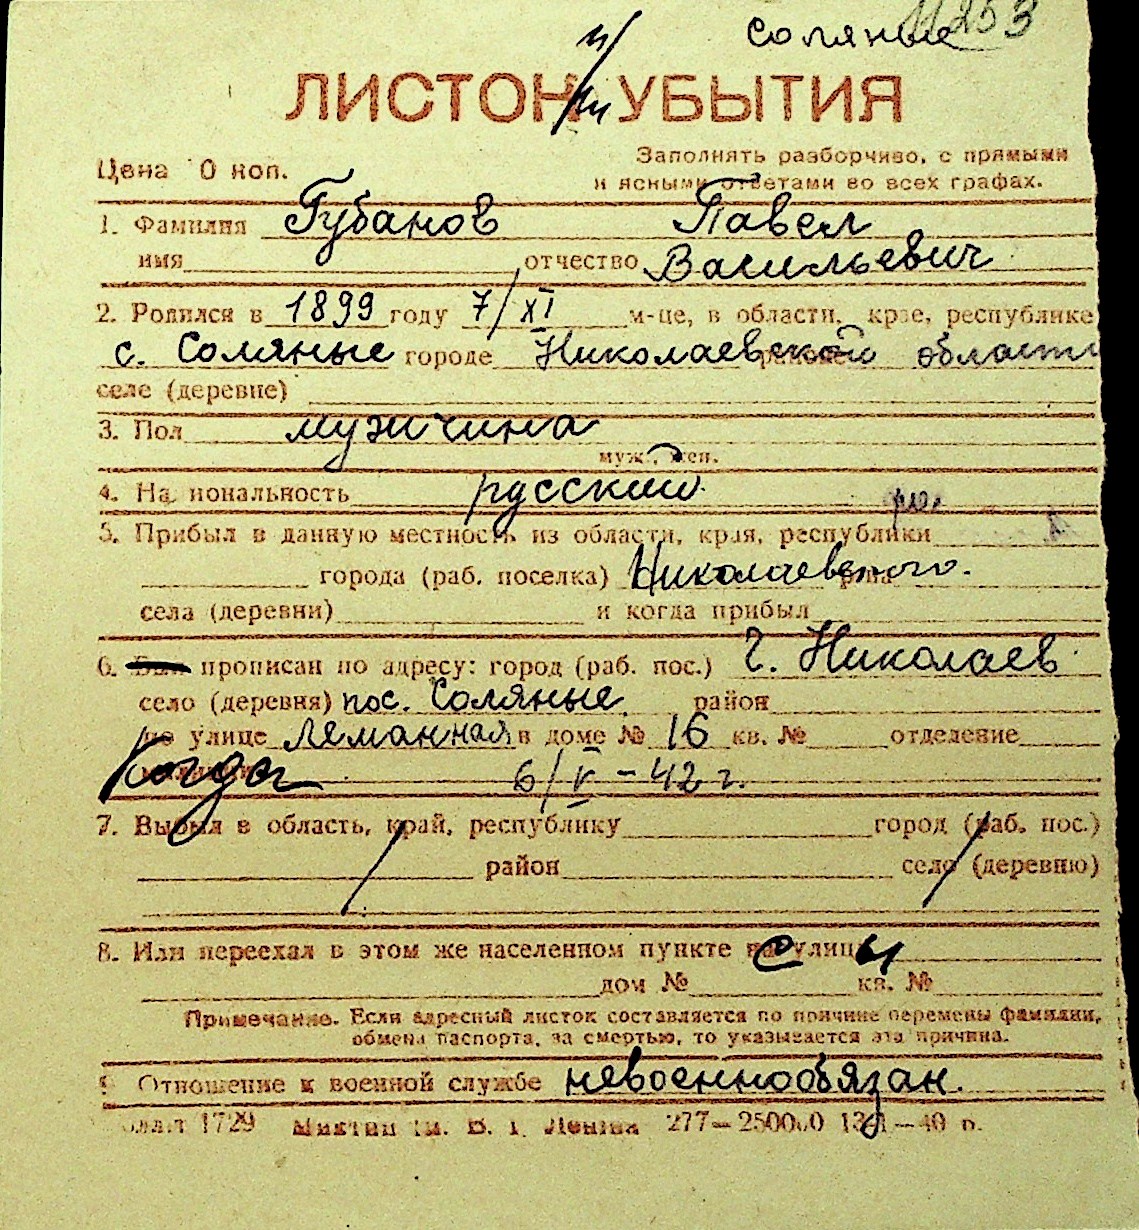 Соляные 11253
ЛИСТОК УБЫТИЯ
Цена 0 коп. Заполнять разборчиво, с прямыми
и ясными ответами во всех графах.
1. Фамилия Губанов Павел
имя отчество Васильевич
2. Родился в 1899 году 7/XI м-це, в области, крае, республике
с. Соляные городе Николаевской области
селе (деревне)
3. Пол мужчина
муж., жен.
4. Национальность русский
5. Прибыл в данную местность из области, края, республики
города (раб. поселка) Николаевского р-на
села (деревни) и когда прибыл
6. Был прописан по адресу: город (раб. пос.) г. Николаев
село (деревня) пос. Соляные район
по улице Леманная в доме № 16 кв. № отделение
Когда 6/V-42 г.
7. Выбыл в область, край, республику город (раб. пос.)
район село (деревню)
8. Или переехал в этом же населенном пункте с улицы
дом № кв. №
Примечание. Если адресный листок составляется по причине перемены фамилии,
обмена паспорта, за смертью, то указывается эта причина.
9 Отношение к военной службе невоеннообязан.
1729 им. В. И. Ленина 277—250000